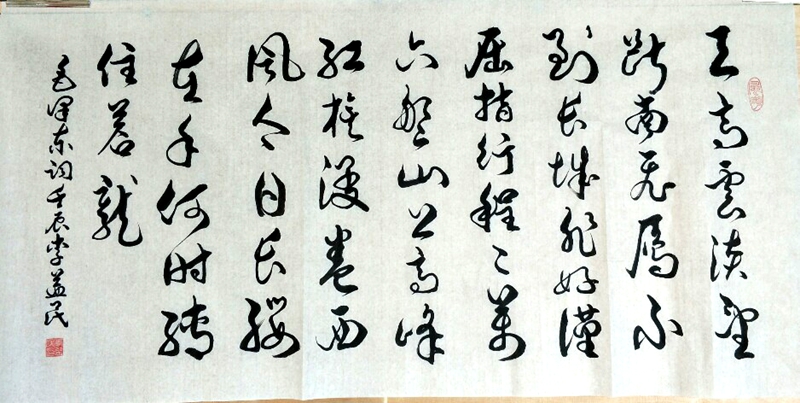 天高雲淡望
断南飞雁不
到长城非好漢
屈指行程二萬
六盤山上高峰
红旗漫卷西
風今日长缨
在手何时缚
住蒼龍
毛泽东词壬辰李益民